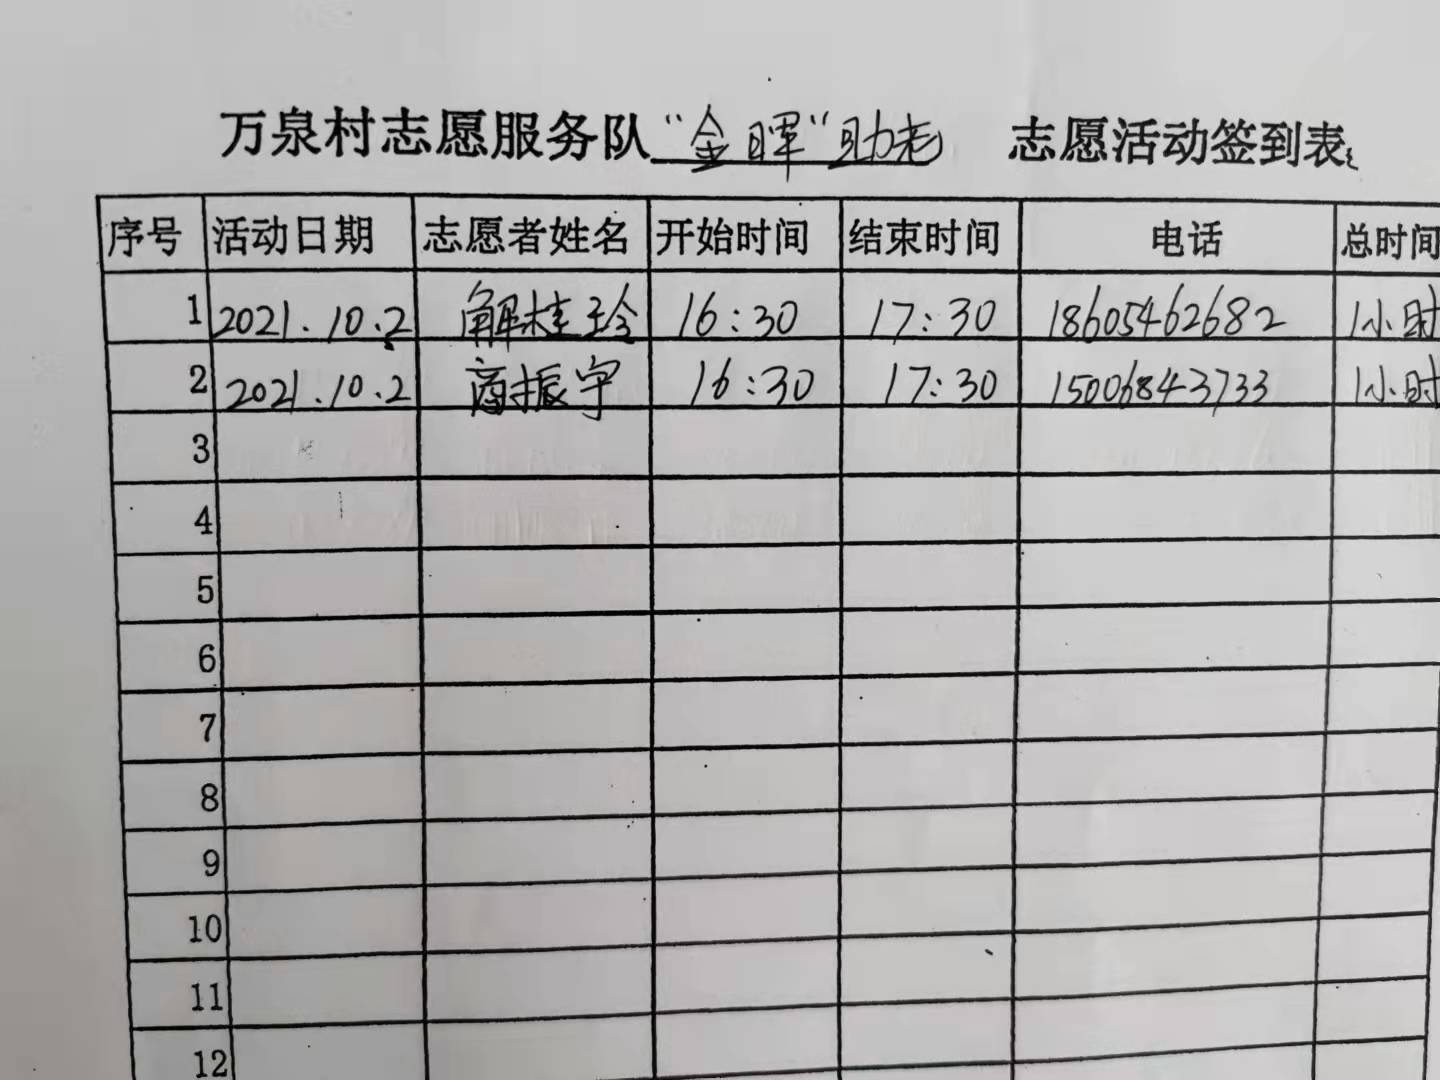 万泉村志愿服务队“金晖”助老 志愿活动签到表
序号 活动日期 志愿者姓名 开始时间 结束时间 电话 总时间
1 2021.10.2 解桂玲 16:30 17:30 18605462682 1小时
2 2021.10.2 商振宇 16:30 17:30 15006843733 1小时
3
4
5
6
7
8
9
10
11
12